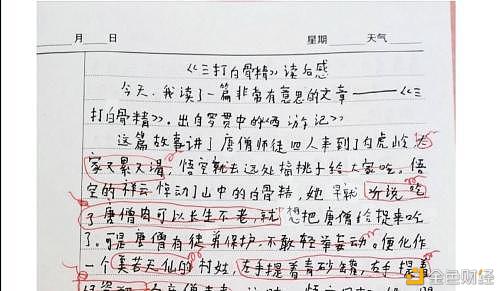 月 日 星期 天气
《三打白骨精》读后感
今天,我读了一篇非常有意思的文章——《三
打白骨精》。出自罗贯中的《西游记》
这篇故事讲了唐僧师徒四人来到了白虎岭,大
家又累又渴,悟空就去远处摘桃子给大家吃。悟
空的祥云惊动了山中的白骨精,她早就听说吃
了唐僧肉可以长生不老,就想把唐僧给捉来吃
了。可是唐僧有徒弟保护,不敢轻举妄动。便化作
一个美若天仙的村姑,左手提着青砂罐,右手提着
金色财经